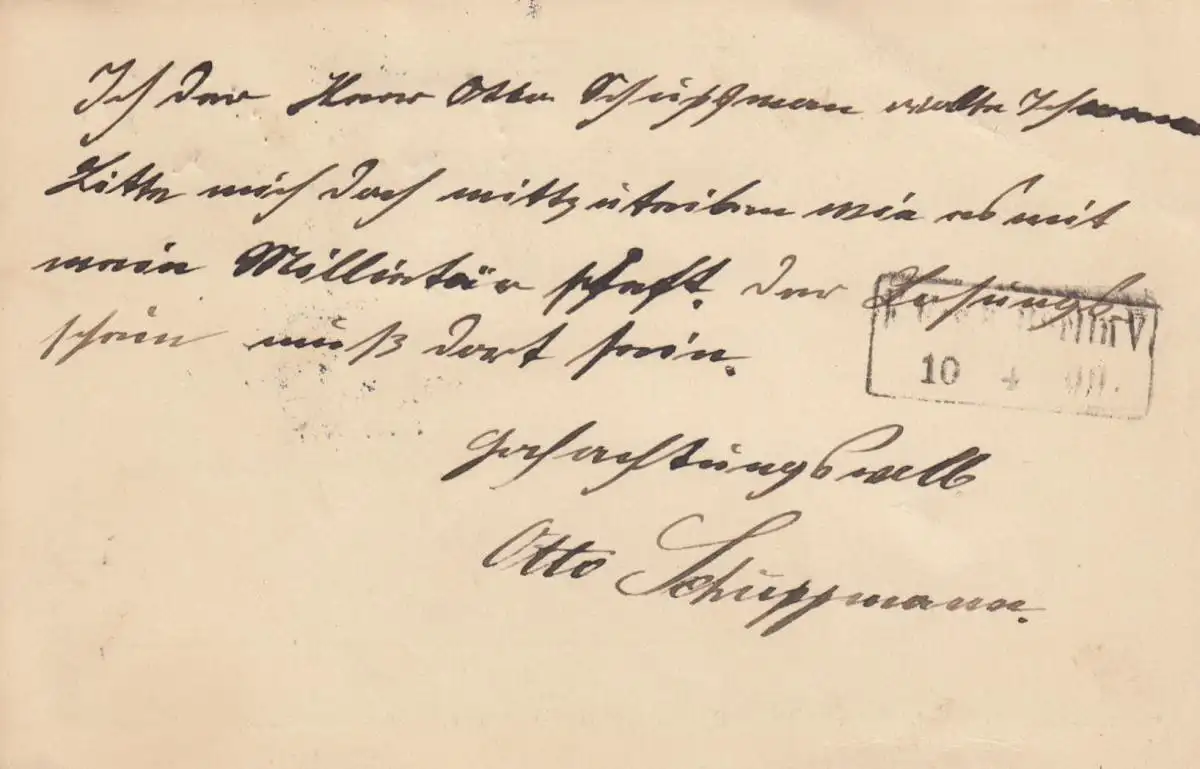 Ich der Herr Otto Schuppman wollte Ihnen
bitte mich doch mittzuteilen wie es mit
mein Millietär steht. der Losungs-
schein muß dort sein.
10 4 00.
Hochachtungsvoll
Otto Schuppmann.